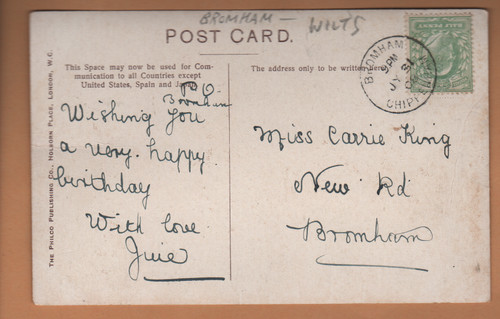 BROMHAM — WILTS
POST CARD.
This Space may now be used for Com-
munication to all Countries except
United States, Spain and
The address only to be written
P.O.
Bromham
Wishing you
a very happy
birthday
With love
Miss Carrie King
New Rd
Bromham
THE PHILCO PUBLISHING CO., HOLBORN PLACE, LONDON, W.C.
HALF PENNY
BROMHAM
CHIPP